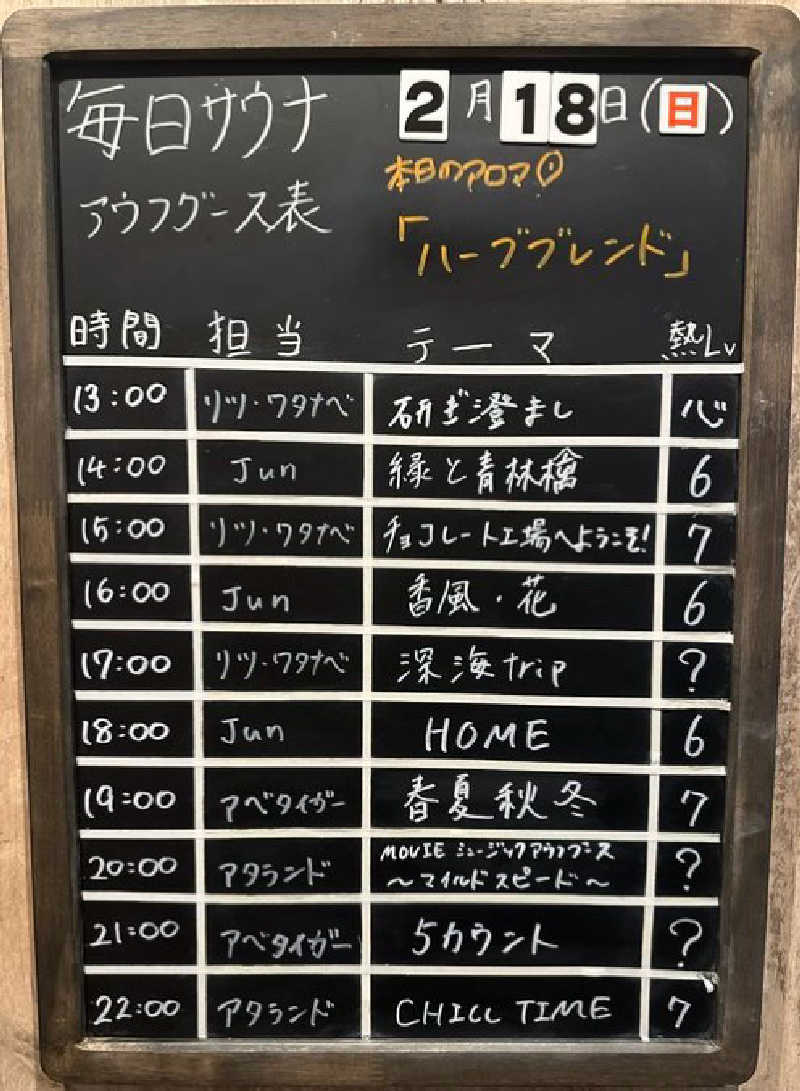 毎日サウナ
アウフグース表
2月18日(日)
本日のアロマ
「ハーブブレンド」
時間 担当 テーマ 熱Lv
13:00 リツ・ワタナベ 研ぎ澄まし 心
14:00 Jun 緑と青林檎 6
15:00 リツ・ワタナベ チョコレート工場へようこそ! 7
16:00 Jun 香風・花 6
17:00 リツ・ワタナベ 深海trip ?
18:00 Jun HOME 6
19:00 アベタイガー 春夏秋冬 7
20:00 アタランド MOVIE ミュージックアウフグース
～マイルドスピード～ ?
21:00 アベタイガー 5カウント ?
22:00 アタランド CHILL TIME 7